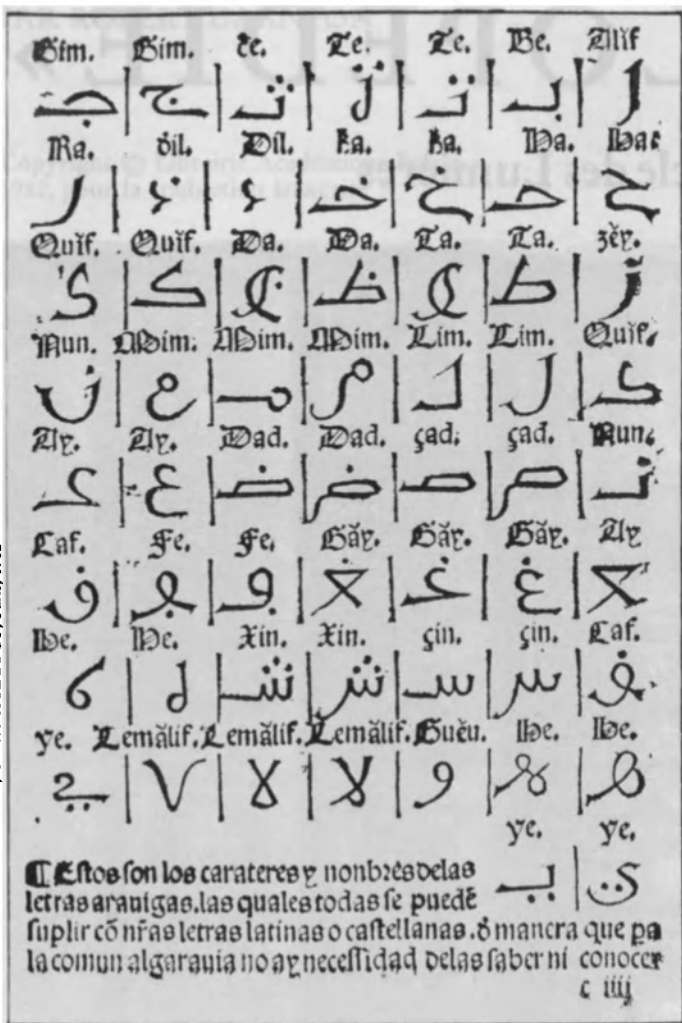 Gim. Gim. c̆e. Te. Te. Be. Alif
ا ب ت ت ث ج ج
Ra. ðil. Dil. ka. ka. Ha. Ha.
ح ح خ خ د ذ ر
Quif. Quif. Da. Da. Ta. Ta. zĕy.
ز ط ط ظ ظ ك ك
Nun. Mim. Mim. Mim. Lim. Lim. Quif.
ك ل ل م م م ن
Ay. Ay. Dad. Dad. çad. çad. Nun.
ن ص ص ض ض ع ع
Caf. Fe. Fe. Găy. Găy. Găy. Ay
ع غ غ غ ڢ ڢ ڧ
He. He. Xin. Xin. çin. çin. Caf.
ڧ س س ش ش ه ه
ye. Lemălif. Lemălif. Lemălif. Guĕu. He. He.
ه ه و لا لا لا ي
ye. ye.
ي ي
¶ Estos son los carateres y nonbres delas
letras arauigas. las quales todas se puedē
suplir cō nr̃as letras latinas o castellanas. ð manera que pa
la comun algarauia no ay necessidad delas saber ni conocer
c iiij